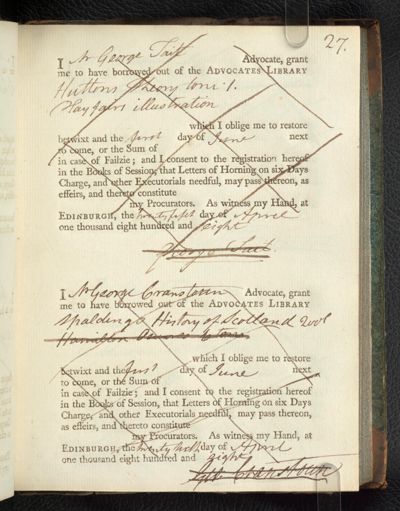 27.
I Mr George Tait Advocate, grant
me to have borrowed out of the ADVOCATES LIBRARY
Huttons Theory tom. 1.
Playfairs illustration
which I oblige me to restore
betwixt and the first day of June next
to come, or the Sum of
in case of Failzie; and I consent to the registration hereof
in the Books of Session, that Letters of Horning on six Days
Charge, and other Executorials needful, may pass thereon, as
effeirs, and thereto constitute
my Procurators. As witness my Hand, at
EDINBURGH, the day of April
one thousand eight hundred and eight
George Tait
I Mr George Cranstoun Advocate, grant
me to have borrowed out of the ADVOCATES LIBRARY
Spalding's History of Scotland 2 vol
Hamilton
which I oblige me to restore
betwixt and the first day of June next
to come, or the Sum of
in case of Failzie; and I consent to the registration hereof
in the Books of Session, that Letters of Horning on six Days
Charge, and other Executorials needful, may pass thereon,
as effeirs, and thereto constitute
my Procurators. As witness my Hand, at
EDINBURGH, the day of April
one thousand eight hundred and eight
Geo. Cranstoun